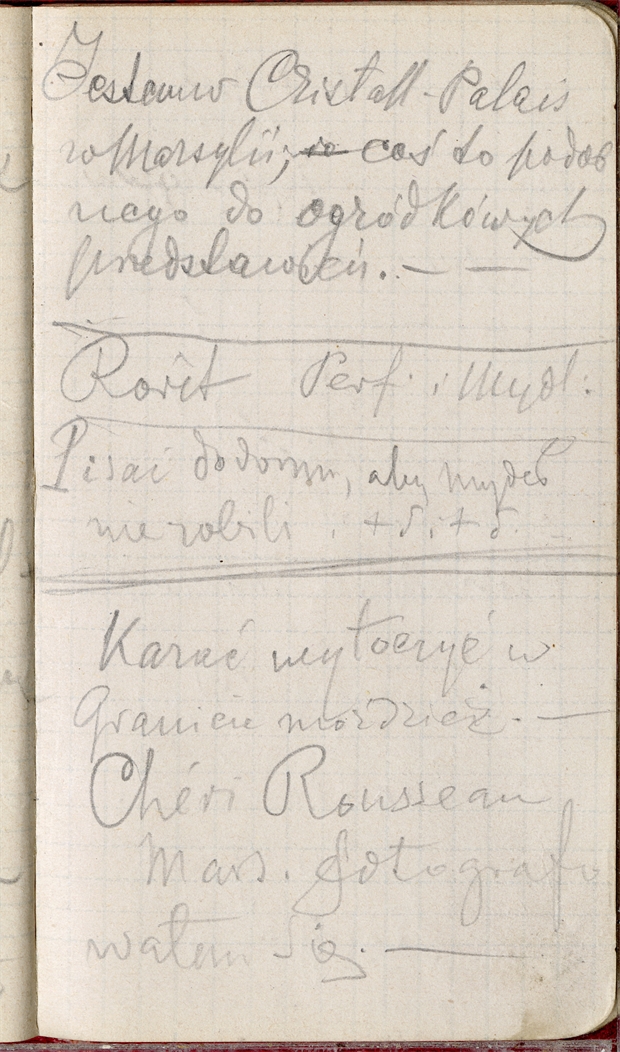 Jestem w Cristall-Palais
w Marsylii, coś to podob
nego do ogródkówych
przedstawień. — —
Rorêt Perf. i Mydł:
Pisać do domu, aby mydeł
nie robili . + 5. + 5.
Kazać wytoczyć w
Granicie moździeż. —
Chéri Rousseau
Mars. fotografo
wałem się. —